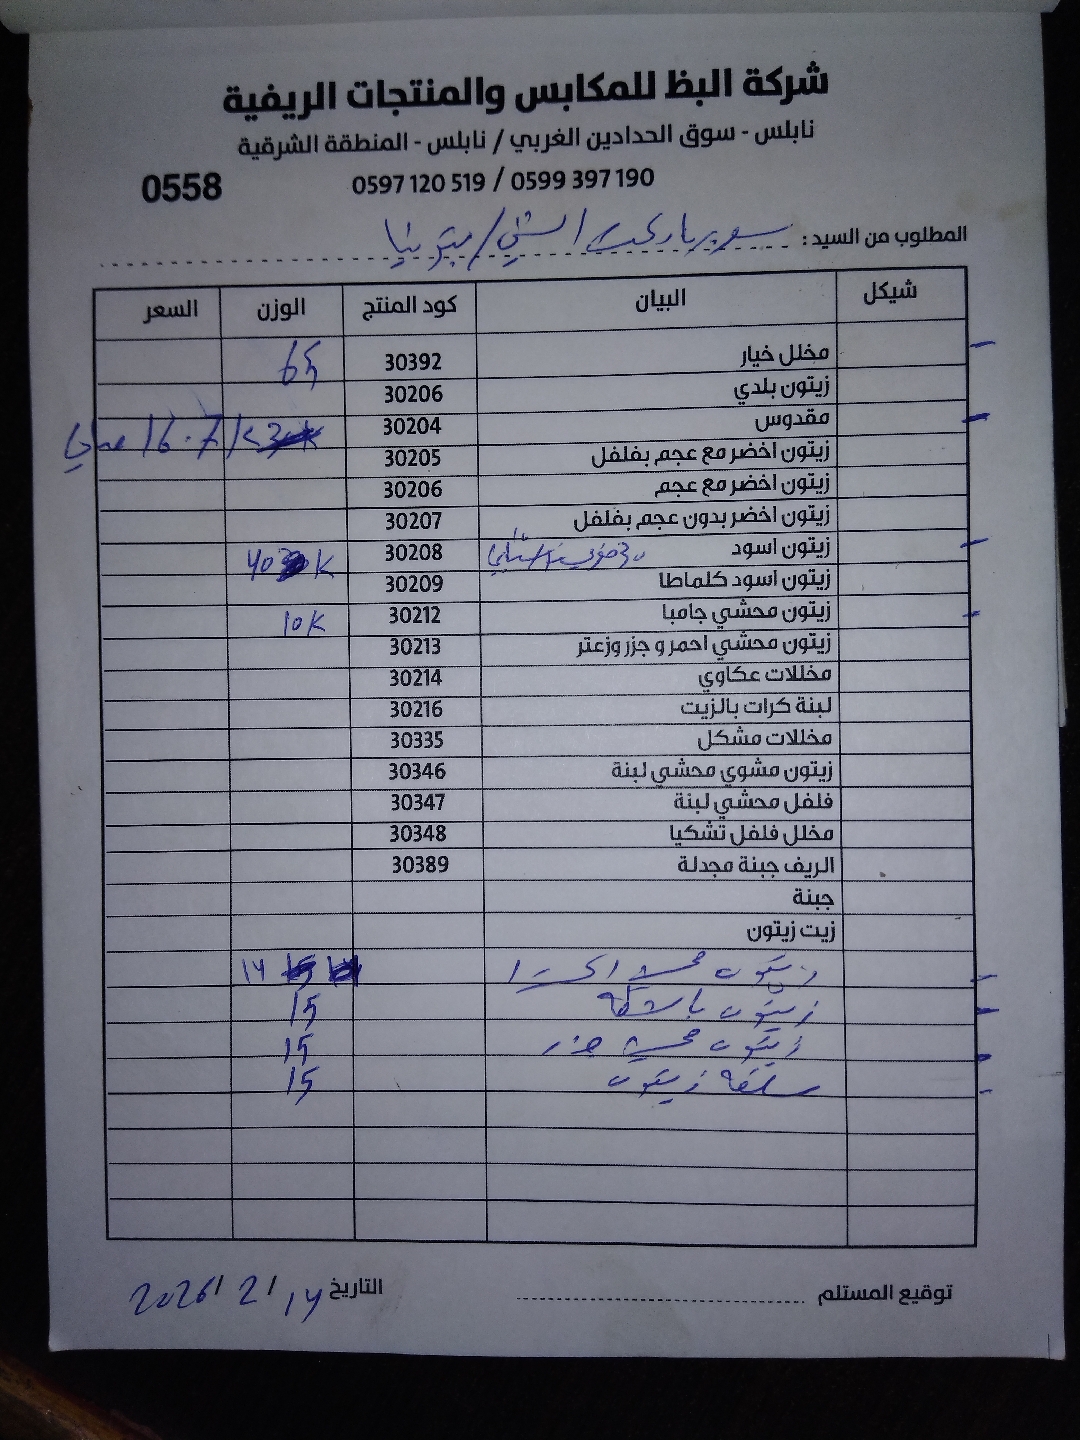 شركة البظ للمكابس والمنتجات الريفية
نابلس - سوق الحدادين الغربي / نابلس - المنطقة الشرقية
0597 120 519 / 0599 397 190
0558
المطلوب من السيد: سوبر ماركت
شيكل البيان كود المنتج الوزن السعر
مخلل خيار 30392 65
زيتون بلدي 30206
مقدوس 30204 16.7
زيتون اخضر مع عجم بفلفل 30205
زيتون اخضر مع عجم 30206
زيتون اخضر بدون عجم بفلفل 30207
زيتون اسود 30208 40 K
زيتون اسود كلماطا 30209
زيتون محشي جامبا 30212 10K
زيتون محشي احمر و جزر وزعتر 30213
مخللات عكاوي 30214
لبنة كرات بالزيت 30216
مخللات مشكل 30335
زيتون مشوي محشي لبنة 30346
فلفل محشي لبنة 30347
مخلل فلفل تشكيا 30348
الريف جبنة مجدلة 30389
جبنة
زيت زيتون
زيتون محشي 14
زيتون 15
زيتون محشي جزر 15
سلطة زيتون 15
توقيع المستلم
التاريخ 14/2/2026